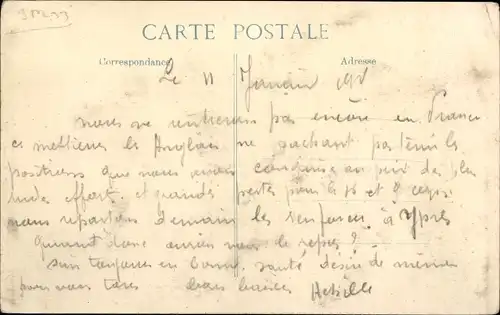 CARTE POSTALE
Correspondance
Adresse
Le 11
nous ne rentrerons pas encore en France
ces messieurs les Anglais ne sachant pas tenir les
positions que nous avons conquises au prix des plus
rudes effort et grandes pertes pour le 16 et 9 corps
nous repartons demain les renforcer à Ypres
Quand donc aurions nous le repos ?
Suis toujours en bonne santé désire de même
pour vous tous bons baisers Achille